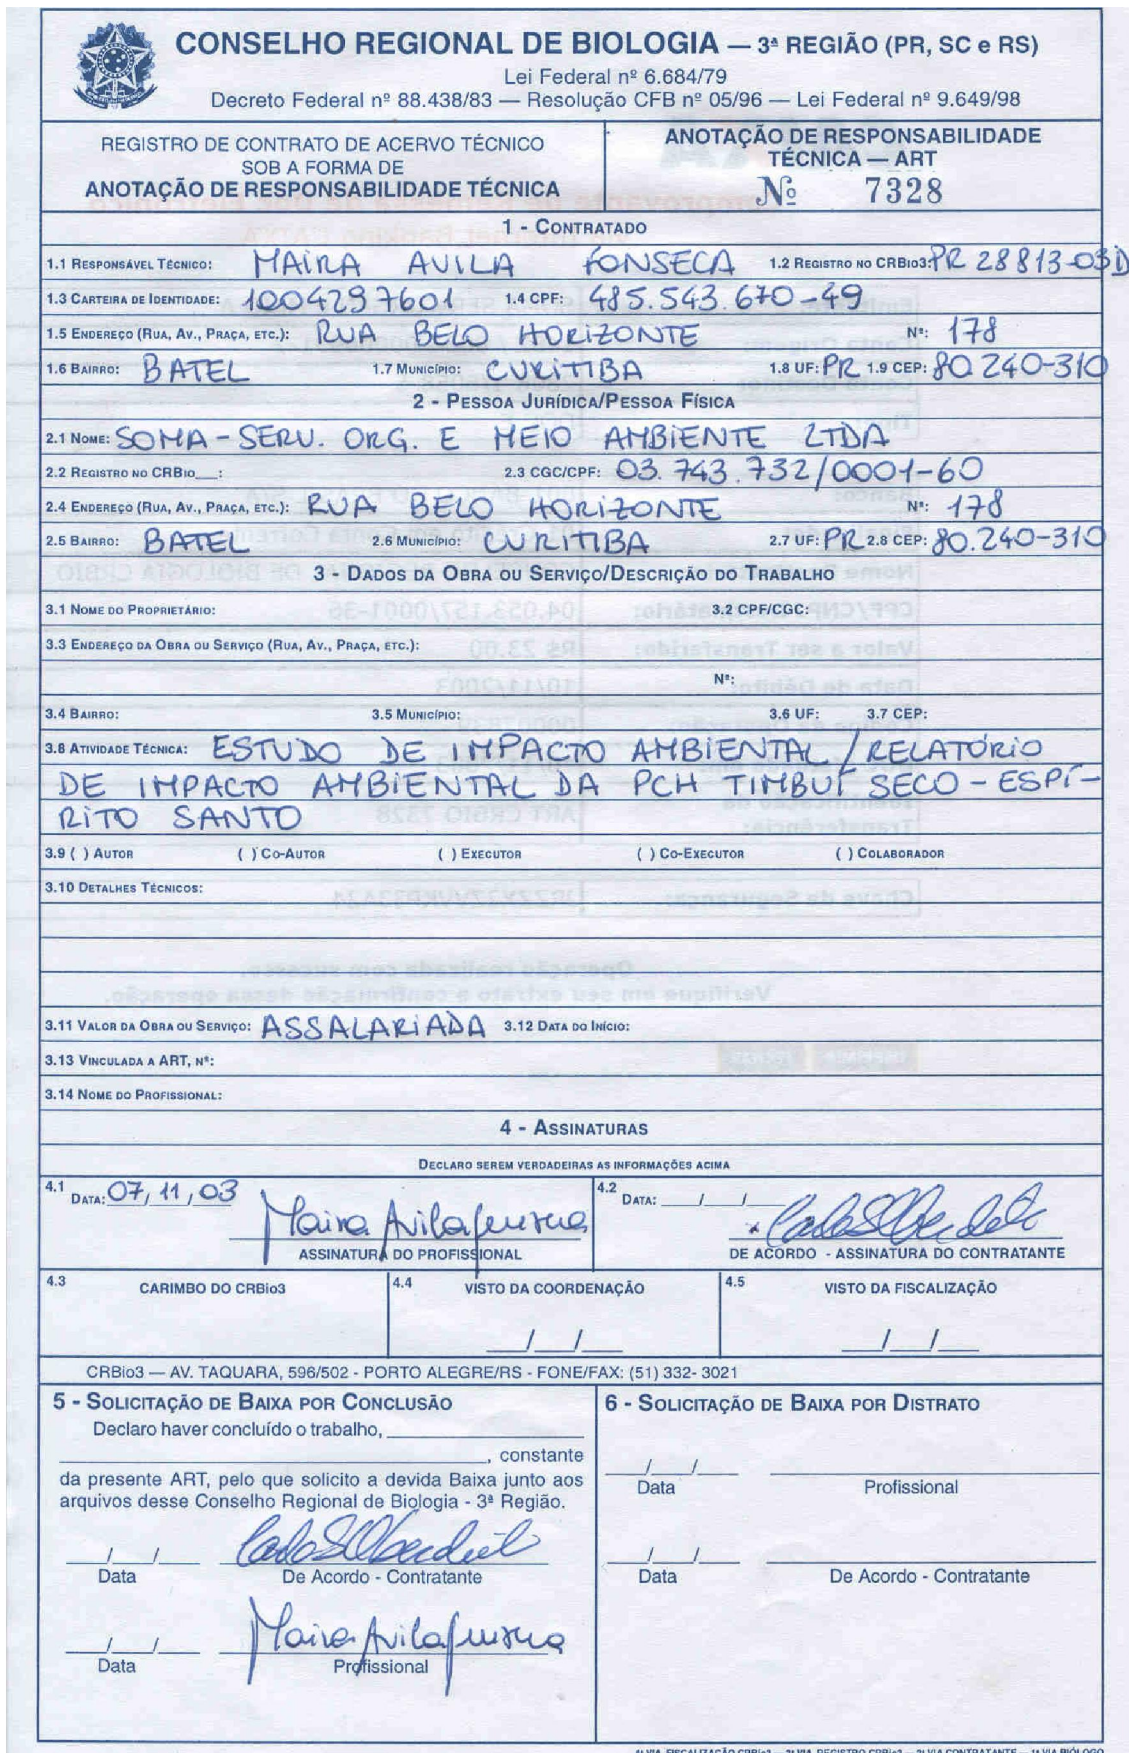 CONSELHO REGIONAL DE BIOLOGIA — 3ª REGIÃO (PR, SC e RS)
Lei Federal nº 6.684/79
Decreto Federal nº 88.438/83 — Resolução CFB nº 05/96 — Lei Federal nº 9.649/98
REGISTRO DE CONTRATO DE ACERVO TÉCNICO
SOB A FORMA DE
ANOTAÇÃO DE RESPONSABILIDADE TÉCNICA
ANOTAÇÃO DE RESPONSABILIDADE
TÉCNICA — ART
Nº 7328
1 - CONTRATADO
1.1 RESPONSÁVEL TÉCNICO: MAIRA AVILA FONSECA 1.2 REGISTRO NO CRBio3: PR 28813-03D
1.3 CARTEIRA DE IDENTIDADE: 1004297601 1.4 CPF: 485.543.670-49
1.5 ENDEREÇO (RUA, AV., PRAÇA, ETC.): RUA BELO HORIZONTE Nº: 178
1.6 BAIRRO: BATEL 1.7 MUNICÍPIO: CURITIBA 1.8 UF: PR 1.9 CEP: 80.240-310
2 - PESSOA JURÍDICA/PESSOA FÍSICA
2.1 NOME: SOMA-SERV. ORG. E MEIO AMBIENTE LTDA
2.2 REGISTRO NO CRBIO__: 2.3 CGC/CPF: 03.743.732/0001-60
2.4 ENDEREÇO (RUA, AV., PRAÇA, ETC.): RUA BELO HORIZONTE Nº: 178
2.5 BAIRRO: BATEL 2.6 MUNICÍPIO: CURITIBA 2.7 UF: PR 2.8 CEP: 80.240-310
3 - DADOS DA OBRA OU SERVIÇO/DESCRIÇÃO DO TRABALHO
3.1 NOME DO PROPRIETÁRIO: 3.2 CPF/CGC:
3.3 ENDEREÇO DA OBRA OU SERVIÇO (RUA, AV., PRAÇA, ETC.):
Nº:
3.4 BAIRRO: 3.5 MUNICÍPIO: 3.6 UF: 3.7 CEP:
3.8 ATIVIDADE TÉCNICA: ESTUDO DE IMPACTO AMBIENTAL/RELATÓRIO
DE IMPACTO AMBIENTAL DA PCH TIMBUÍ SECO - ESPÍ-
RITO SANTO
3.9 ( ) AUTOR ( ) CO-AUTOR ( ) EXECUTOR ( ) CO-EXECUTOR ( ) COLABORADOR
3.10 DETALHES TÉCNICOS:
3.11 VALOR DA OBRA OU SERVIÇO: ASSALARIADA 3.12 DATA DO INÍCIO:
3.13 VINCULADA A ART, Nº:
3.14 NOME DO PROFISSIONAL:
4 - ASSINATURAS
DECLARO SEREM VERDADEIRAS AS INFORMAÇÕES ACIMA
4.1 DATA: 07/11/03
Maira Avila Fonseca
ASSINATURA DO PROFISSIONAL
4.2 DATA: __/__/__
DE ACORDO - ASSINATURA DO CONTRATANTE
4.3 CARIMBO DO CRBio3
4.4 VISTO DA COORDENAÇÃO
__/__/__
4.5 VISTO DA FISCALIZAÇÃO
__/__/__
CRBio3 — AV. TAQUARA, 596/502 - PORTO ALEGRE/RS - FONE/FAX: (51) 332- 3021
5 - SOLICITAÇÃO DE BAIXA POR CONCLUSÃO
Declaro haver concluído o trabalho, ____
____, constante
da presente ART, pelo que solicito a devida Baixa junto aos
arquivos desse Conselho Regional de Biologia - 3ª Região.
__/__/__
Data De Acordo - Contratante
__/__/__ Maira Avila Fonseca
Data Profissional
6 - SOLICITAÇÃO DE BAIXA POR DISTRATO
__/__/__
Data Profissional
__/__/__
Data De Acordo - Contratante